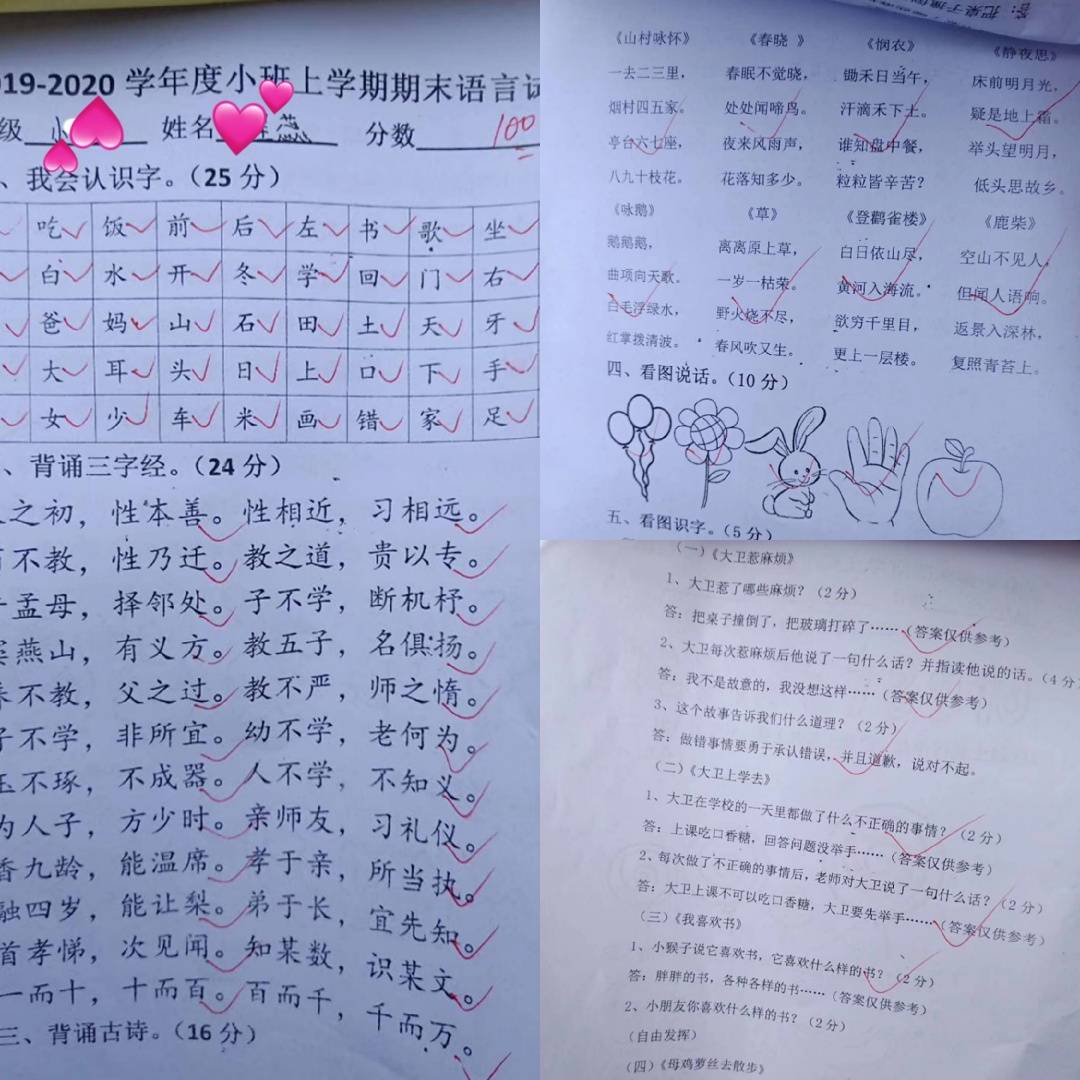 019-2020 学年度小班上学期期末语言试
级 姓名 蕊 分数 100
、我会认识字。（25 分）
吃 饭 前 后 左 书 歌 坐
白 水 开 冬 学 回 门 右
爸 妈 山 石 田 土 天 牙
大 耳 头 日 上 口 下 手
女 少 车 米 画 错 家 足
、背诵三字经。（24 分）
之初，性本善。性相近，习相远。
不教，性乃迁。教之道，贵以专。
孟母，择邻处。子不学，断机杼。
燕山，有义方。教五子，名俱扬。
不教，父之过。教不严，师之惰。
不学，非所宜。幼不学，老何为。
不琢，不成器。人不学，不知义。
为人子，方少时。亲师友，习礼仪。
香九龄，能温席。孝于亲，所当执。
融四岁，能让梨。弟于长，宜先知。
首孝悌，次见闻。知某数，识某文。
一而十，十而百。百而千，千而万。
三、背诵古诗。（16 分）
答：把桌子撞倒
《山村咏怀》 《春晓 》 《悯农》 《静夜思》
一去二三里， 春眠不觉晓， 锄禾日当午， 床前明月光，
烟村四五家。 处处闻啼鸟。 汗滴禾下土。 疑是地上霜。
亭台六七座， 夜来风雨声， 谁知盘中餐， 举头望明月，
八九十枝花。 花落知多少。 粒粒皆辛苦？ 低头思故乡。
《咏鹅》 《草》 《登鹳雀楼》 《鹿柴》
鹅鹅鹅， 离离原上草， 白日依山尽， 空山不见人，
曲项向天歌。 一岁一枯荣。 黄河入海流。 但闻人语响。
白毛浮绿水， 野火烧不尽， 欲穷千里目， 返景入深林，
红掌拨清波。 春风吹又生。 更上一层楼。 复照青苔上。
四、看图说话。（10 分）
五、看图识字。（5 分）
（一）《大卫惹麻烦》
1、大卫惹了哪些麻烦？（2 分）
答：把桌子撞倒了，把玻璃打碎了……（答案仅供参考）
2、大卫每次惹麻烦后他说了一句什么话？并指读他说的话。（4 分
答：我不是故意的，我没想这样……（答案仅供参考）
3、这个故事告诉我们什么道理？（2 分）
答：做错事情要勇于承认错误，并且道歉，说对不起。
（二）《大卫上学去》
1、大卫在学校的一天里都做了什么不正确的事情？（2 分）
答：上课吃口香糖，回答问题没举手……（答案仅供参考）
2、每次做了不正确的事情后，老师对大卫说了一句什么话？（2 分）
答：大卫上课不可以吃口香糖，大卫要先举手……（答案仅供参考）
（三）《我喜欢书》
1、小猴子说它喜欢书，它喜欢什么样的书？（2 分）
答：胖胖的书，各种各样的书……（答案仅供参考）
2、小朋友你喜欢什么样的书？（2 分）
（自由发挥）
（四）《母鸡萝丝去散步》